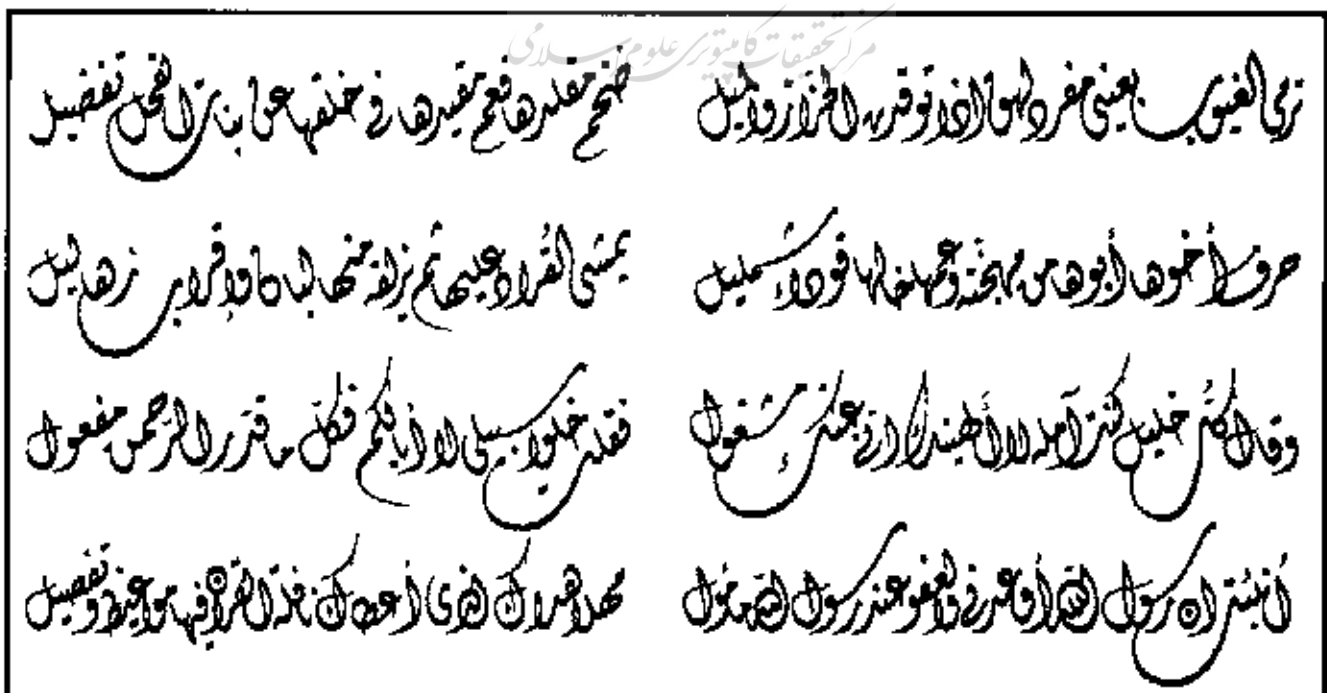 مرکز تحقیقات کامپیوتری علوم اسلامی
ترمي الغيوب بعيني مفرد لهق اذا توقدت الحزاز والميل ضخم مقلدها فعم مقيدها في خلقها عن بنات الفحل تفضيل
حرف أخوها أبوها من مهجنة وعمها خالها قوداء شمليل يمشي القُراد عليها ثم يزلقه منها لبان وإقراب زهاليل
وقال كلُّ خليل كنت آمله لا أُلهينك إني عنك مشغول فقلت خلوا سبيلي لا أبالكم فكلّ ما قدّر الرحمن مفعول
أُنبئت ان رسول الله أوعدني والعفو عند رسول الله مأمول مهلا هداك الذي أعطاك نافلة القرآن فيها مواعيظ وتفصيل